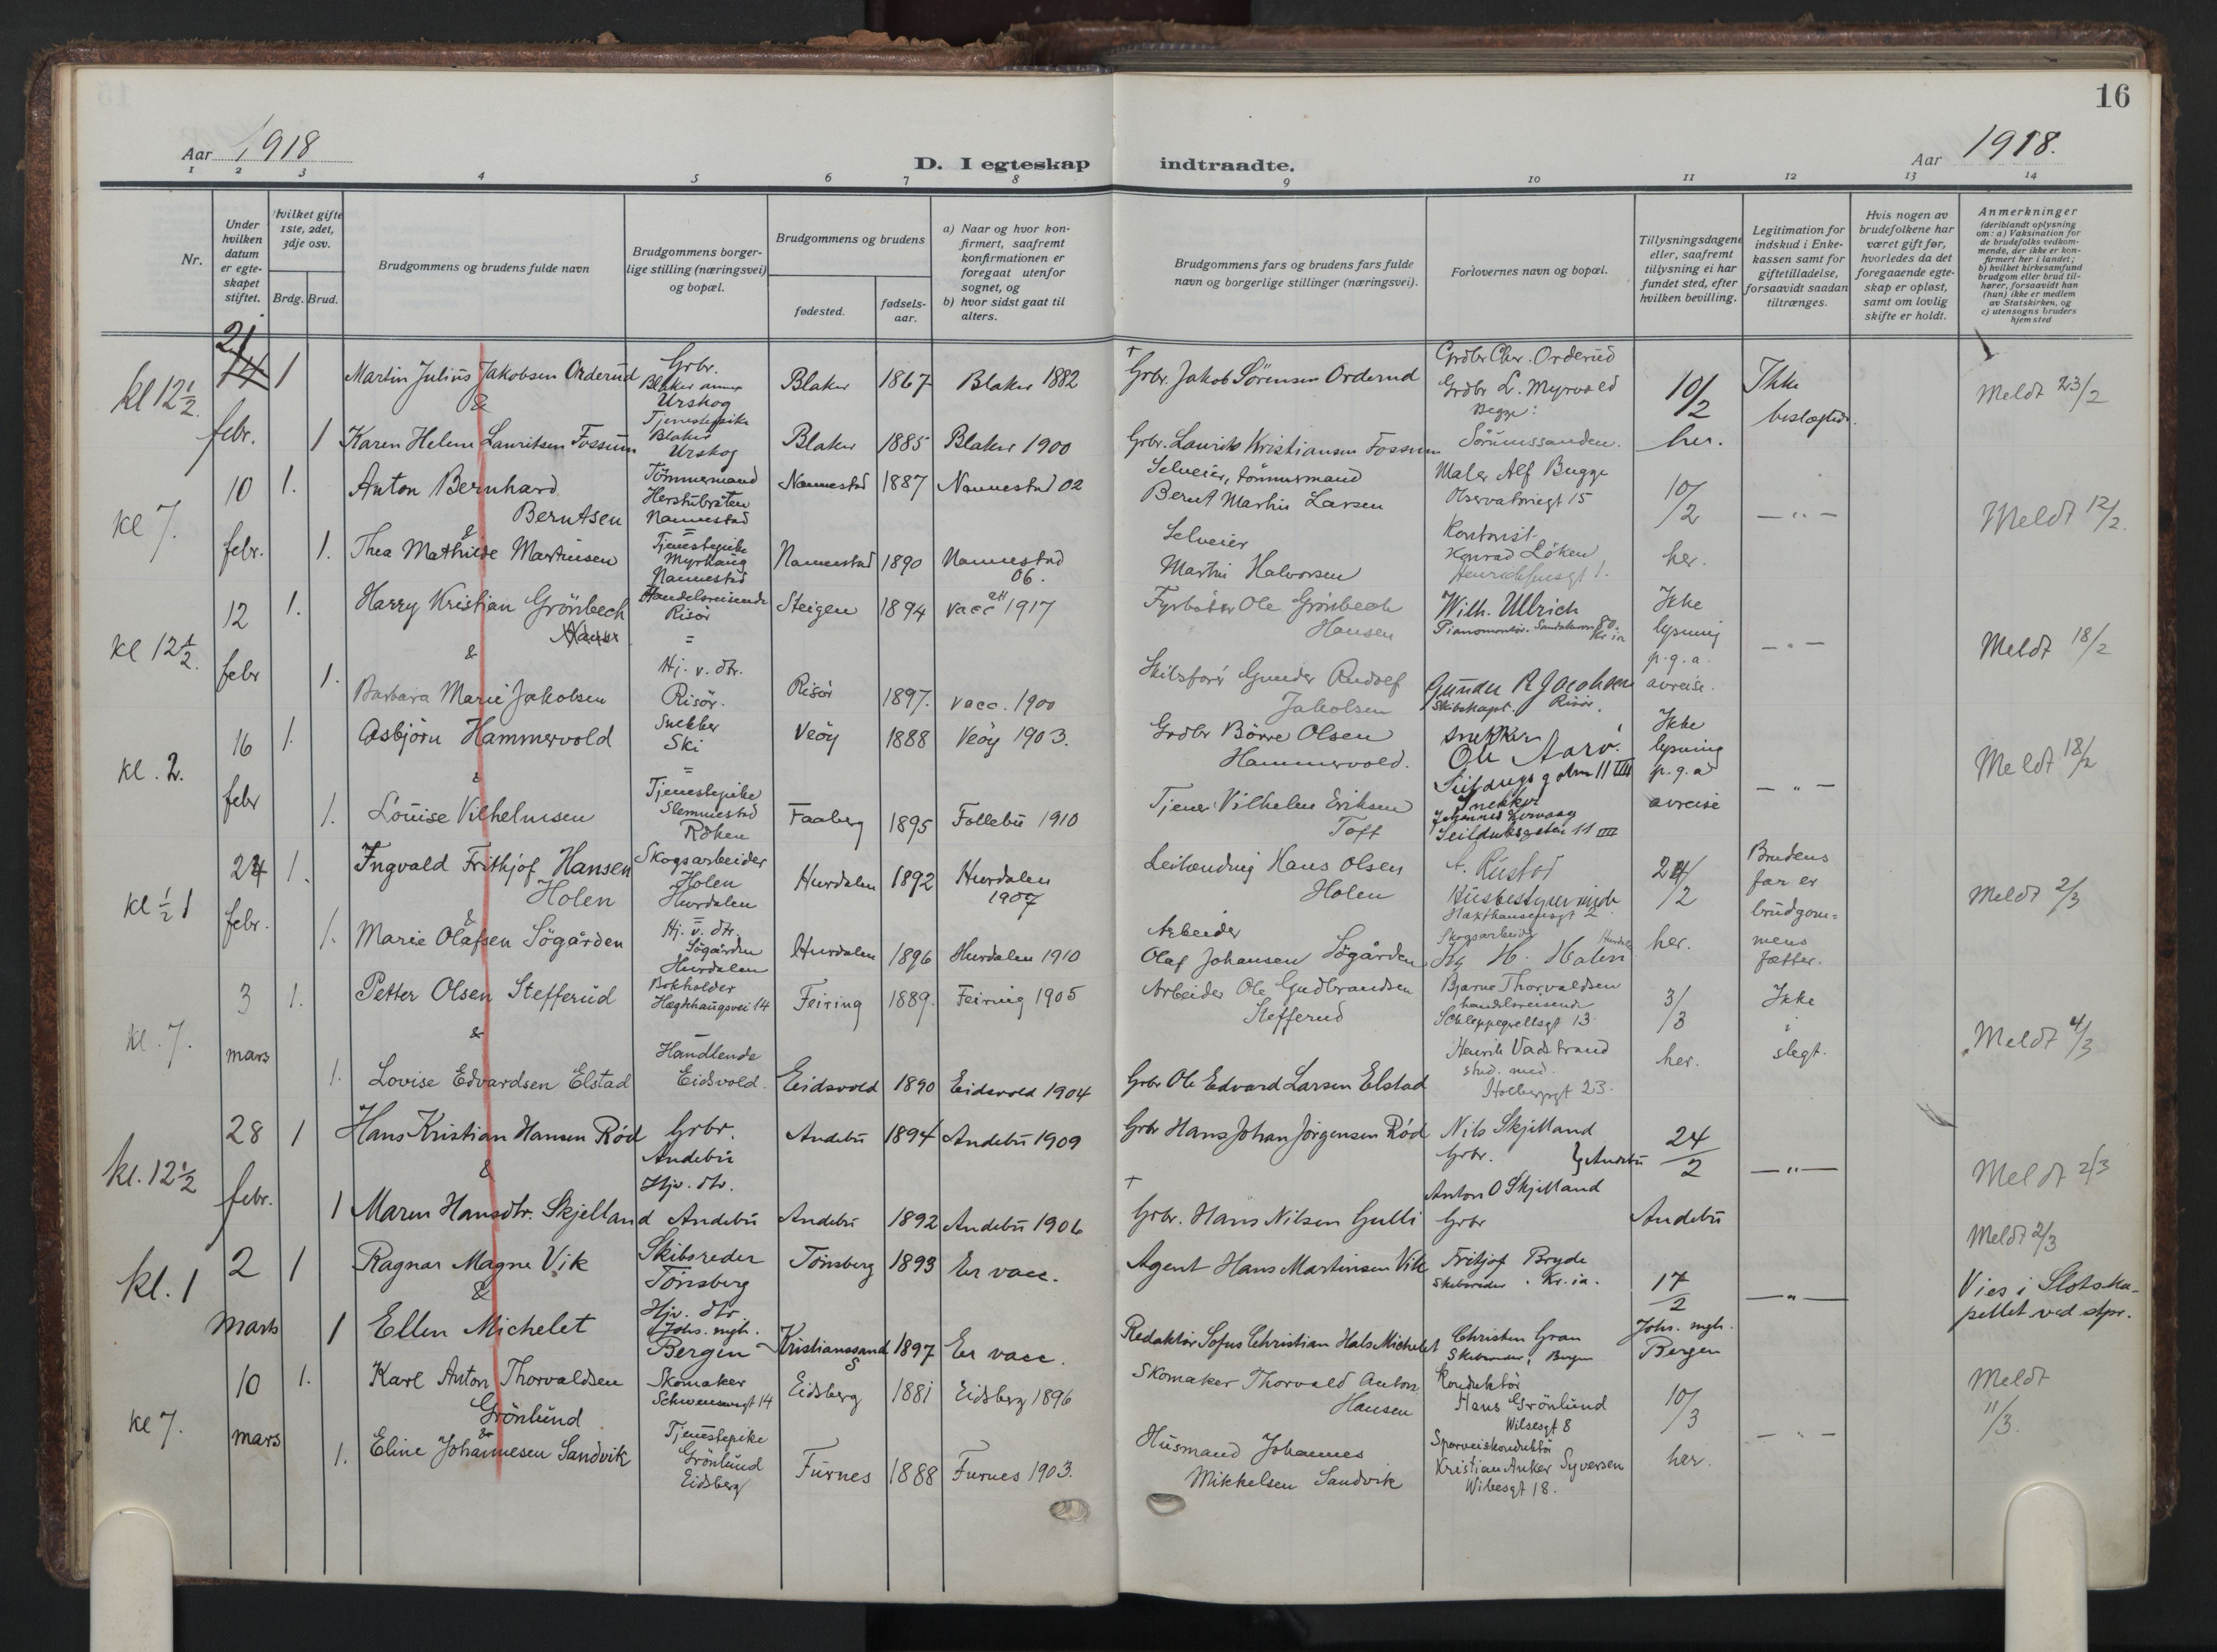 16
Aar 1918
D. I egteskap indtraadte.
Aar 1918.
1 2 3 4 5 6 7 8 9 10 11 12 13 14
Nr.
Under hvilken datum er egteskapet stiftet.
Hvilket gifte 1ste, 2det, 3dje osv.
Brdg. Brud.
Brudgommens og brudens fulde navn
Brudgommens borgerlige stilling (næringsvei) og bopæl.
Brudgommens og brudens
fødested.
fødselsaar.
a) Naar og hvor konfirmert, saafremt konfirmationen er foregaat utenfor sognet, og
b) hvor sidst gaat til alters.
Brudgommens fars og brudens fars fulde navn og borgerlige stillinger (næringsvei).
Forlovernes navn og bopæl.
Tillysningsdagene eller, saafremt tillysning ei har fundet sted, efter hvilken bevilling.
Legitimation for indskud i Enkekassen samt for giftetilladelse, forsaavidt saadan tiltrænges.
Hvis nogen av brudefolkene har været gift før, hvorledes da det foregaaende egteskap er opløst, samt om lovlig skifte er holdt.
Anmerkninger
(deriblandt oplysning om: a) Vaksination for de brudefolks vedkommende, der ikke er konfirmert her i landet; b) hvilket kirkesamfund brudgom eller brud tilhører, forsaavidt han (hun) ikke er medlem av Statskirken, og c) utensogns bruders hjemsted
kl 12 1/2. 21 febr. 1 Martin Julius Jakobsen Orderud Grbr. Blaker annex Urskog Blaker 1867 Blaker 1882 † Grbr. Jakob Sörensen Orderud Grdbr Chr. Orderud Grdbr L. Myrvold Begge: Sörumssanden. 10/2 her. Ikke beslægted. Meldt 23/2
&
1 Karen Helene Lauritsen Fossum Tjenestepike Blaker Urskog Blaker 1885 Blaker 1900 Grbr. Laurits Kristiansen Fossum
kl 7. 10 febr. 1. Anton Bernhard Berntsen Tömmermand Herstubråten Nannestad Nannestad 1887 Nannestad 02 Selveier, tömmermand Bernt Martin Larsen Maler Alf Bugge Observatoriegt 15 10/2 her. — " — Meldt 12/2.
&
1. Thea Mathilde Martinsen Tjenestepike Myrhaug Nannestad Nannestad 1890 Nannestad 06. Selveier Martin Halvorsen Kontorist Konrad Löken
kl 12 1/2. 12 febr 1. Harry Kristian Grönbech Handelsreisende Risör Steigen 1894 vacc 1917 Fyrböter Ole Grönbech Hansen Wilh. Ullrich Pianomontör. Kr.ia Ikke lysning p.g.a. avreise. — " — Meldt 18/2
&
1. Barbara Marie Jakobsen Hj. v. dtr. Risör. Risör 1897. vacc. 1900 Skibsförer Gunder Rudolf Jakobsen Gunder R Jacobsen Skibskapt. Risör.
kl. 2. 16 febr 1. Asbjörn Hammervold Snekker Ski Veöy 1888 Veöy 1903. Grdbr Börre Olsen Hammervold. Snekker Ole Aarö. Ikke lysning p.g.a avreise — " — Meldt 18/2
&
1. Louise Vilhelmsen Tjenestepike Slemmestad Röken Faaberg 1895 Follebu 1910 Tjener Vilhelm Eriksen Toft Snekker Seilduksgaten 11 III
kl 1/2 1 24 febr. 1. Ingvald Frithjof Hansen Holen Skogsarbeider Holen Hurdalen Hurdalen 1892 Hurdalen 1907 Leilænding Hans Olsen Holen A. Rustad Husbestyrer Haxthausensgt 2 24/2 her. Brudens far er brudgommens fætter. Meldt 2/3
&
1. Marie Olafsen Sögården Hj. v. dtr. Sögården Hurdalen Hurdalen 1896 Hurdalen 1910 Arbeider Olaf Johansen Sögården Skogsarbeider H. Holen Hurdalen
kl. 7. 3 mars 1. Petter Olsen Stefferud Bokholder Hægdehaugsvei 14 Feiring 1889. Feiring 1905 Arbeider Ole Gudbrandsen Stefferud Bjarne Thorvaldsen handelsreisende Schleppegrellsgt 13 3/3 her. Ikke i slegt. Meldt 4/3
&
1. Lovise Edvardsen Elstad Handlende Eidsvold. Eidsvold 1890 Eidsvold 1904 Grbr Ole Edvard Larsen Elstad Henrik Vadstrand stud. med. Holbergsgt 23.
kl. 12 1/2 28 febr. 1 Hans Kristian Hansen Röd Grbr. Andebu Andebu 1894 Andebu 1909 Grbr Hans Johan Jörgensen Röd Nils Skjelland Grbr. } Andebu 24/2 Andebu — " — Meldt 2/3
&
1 Maren Hansdtr. Skjelland Hjv. dtr. Andebu Andebu 1892 Andebu 1906 † Grbr. Hans Nilsen Gulli Anton O Skjelland Grbr
kl. 1 2 mars 1 Ragnar Magne Vik Skibsreder Tönsberg Tönsberg 1893 Er vacc. Agent Hans Martinsen Vik Fritjof Bryde Skibsreder. Kr.ia. 17/2 Johs. mgh. Bergen — " — Meldt 2/3 Vies i Slotskapellet ved spr.
&
1 Ellen Michelet Hjv. dtr Johs. mgh. Bergen Kristianssand S 1897 Er vacc. Redaktör Sofus Christian Hals Michelet Christen Gran Skibsreder, Bergen
kl 7. 10 mars 1. Karl Anton Thorvaldsen Grönlund Skomaker Schwensensgt 14 Eidsberg 1881 Eidsberg 1896 Skomaker Thorvald Anton Hansen Konduktör Hans Grönlund Wilsesgt 8 10/3 her. — " — Meldt 11/3.
&
1. Eline Johannesen Sandvik Tjenestepike Grönlund Eidsberg Furnes 1888 Furnes 1903. Husmand Johannes Mikkelsen Sandvik Sporveiskonduktör Kristian Anker Syversen Wibesgt 18.